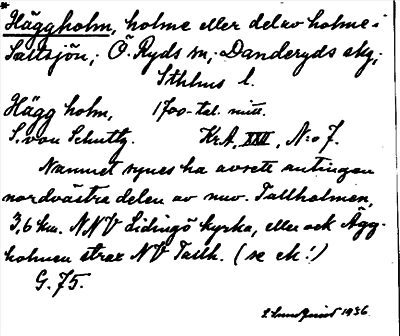 *Häggholm, holme eller del av holme i
Saltsjön; Ö. Ryds sn, Danderyds skg;
Sthlms l.
Hägg holm, 1700-tal. mitt.
S. von Schultz. Kr.A, XXII, N:o 7.
Namnet synes ha avsett antingen
nordvästra delen av nuv. Tallholmen,
3,6 km. NNV Lidingö kyrka, eller ock Ägg-
holmen strax NV Tallh. (se ek!)
G. 75.
1936